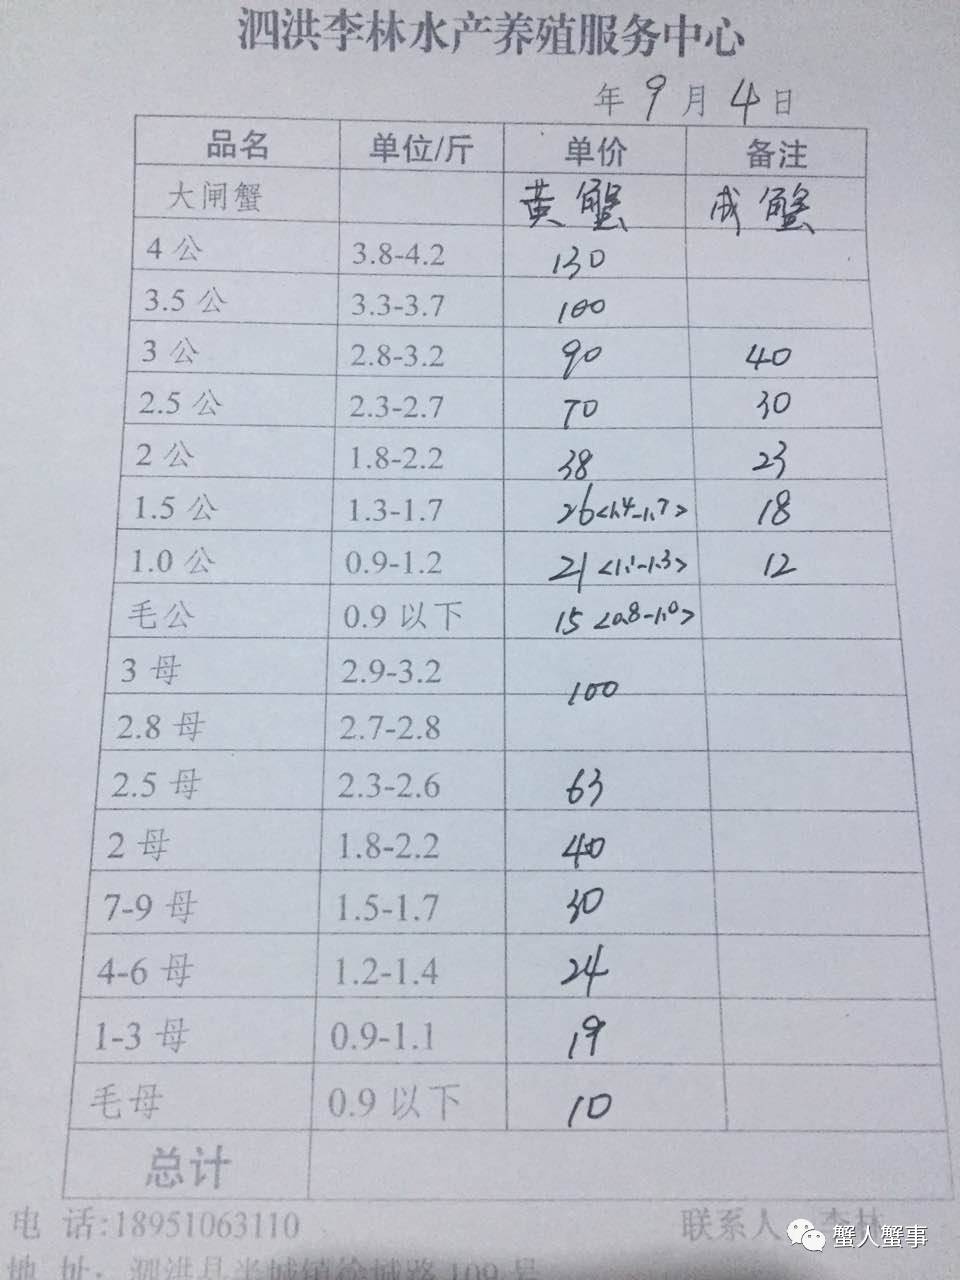 泗洪李林水产养殖服务中心
年 9 月 4 日
品名 单位/斤 单价 备注
大闸蟹 黄蟹 成蟹
4 公 3.8-4.2 130
3.5 公 3.3-3.7 100
3 公 2.8-3.2 90 40
2.5 公 2.3-2.7 70 30
2 公 1.8-2.2 38 23
1.5 公 1.3-1.7 26<1.4-1.7> 18
1.0 公 0.9-1.2 21<1.1-1.3> 12
毛公 0.9 以下 15<0.8-1.0>
3 母 2.9-3.2 100
2.8 母 2.7-2.8
2.5 母 2.3-2.6 63
2 母 1.8-2.2 40
7-9 母 1.5-1.7 30
4-6 母 1.2-1.4 24
1-3 母 0.9-1.1 19
毛母 0.9 以下 10
总计
电 话:18951063110 联系人 李林
地 址: 泗洪县半城镇徐城路 109 号
蟹人蟹事